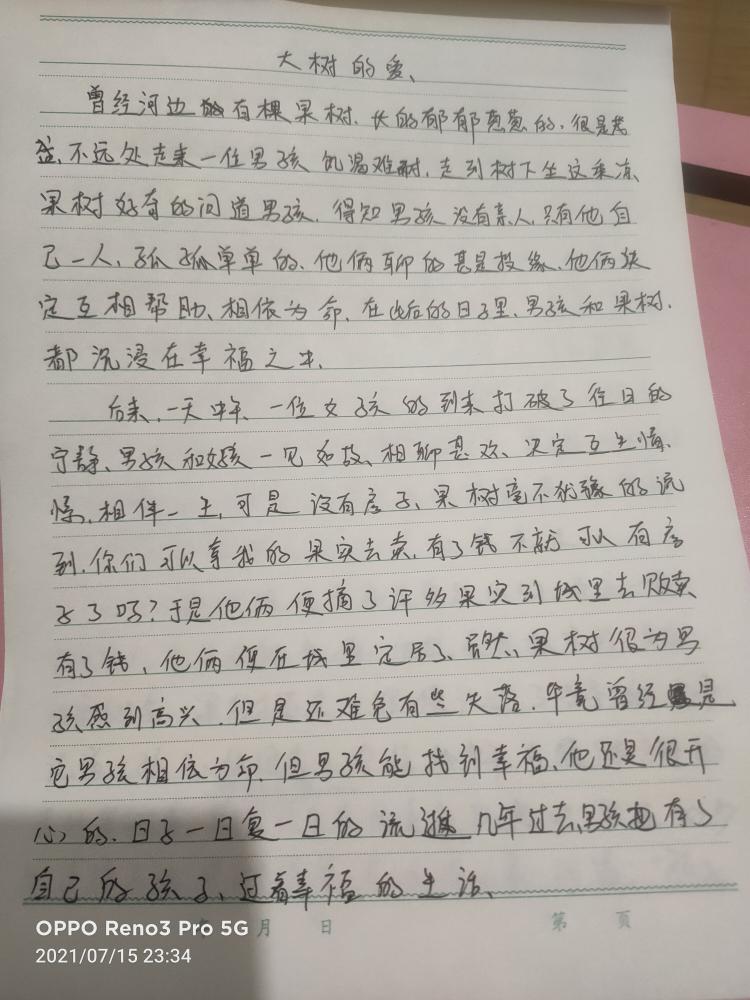 大树的爱、
曾经河边有棵果树、长的郁郁葱葱的、很是茂
盛、不远处走来一位男孩 饥渴难耐、走到树下坐这乘凉、
果树好奇的问道男孩、得知男孩没有亲人、只有他自
己一人、孤孤单单的、他俩聊的甚是投缘、他俩决
定互相帮助、相依为命、在此后的日子里、男孩和果树、
都沉浸在幸福之中、
后来、一天中午、一位女孩的到来打破了往日的
宁静、男孩和女孩一见如故、相聊甚欢、决定互生情
愫、相伴一生、可是没有房子、果树毫不犹豫的说
到、你们可以拿我的果实去卖、有了钱不就可以有房
子了吗？于是他俩便摘了许多果实到城里去败卖
有了钱、他俩便在城里定居了、虽然、果树很为男
孩感到高兴、但是还难免有些失落、毕竟曾经是
它男孩相依为命、但男孩能找到幸福、他还是很开
心的、日子一日复一日的流逝 几年过去、男孩也有了
自己的孩子、过着幸福的生活、
年 月 日 第 页
OPPO Reno3 Pro 5G
2021/07/15 23:34